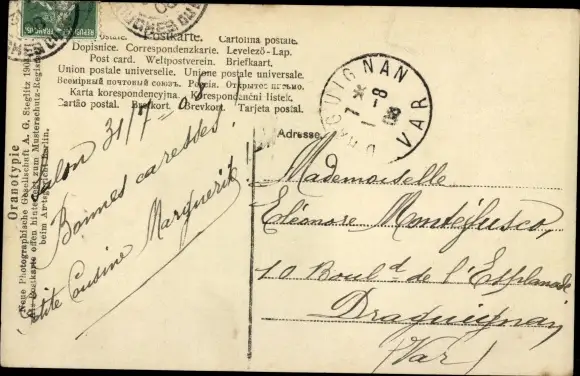 BOUCHES DU
postale. Postkarte. Cartolina postale.
Dopisnice. Correspondenzkarte. Levelező-Lap.
Post card. Weltpostverein. Briefkaart.
Union postale universelle. Unione postale universale.
Всемірный почтовый союзъ. Россія. Открытое письмо.
Karta korespondencyjna. Korespondanční listek.
Cartão postal. Brevkort. Brevkort. Tarjeta postal.
DRAGUIGNAN
VAR
7 *
1 -8
08
Adresse.
Oranotypie
Neue Photographische Gesellschaft A. G. Steglitz 1904.
Postkarte offen hinterlegt zum Musterschutz-Register
beim Amtsgericht Berlin.
Salon 31/7 - 08
Bonnes caresses.
Petite Cousine Marguerite
Mademoiselle
Eléonore Montéfusco,
10 Boul.d de l'Esplanade
Draguignan
(Var)